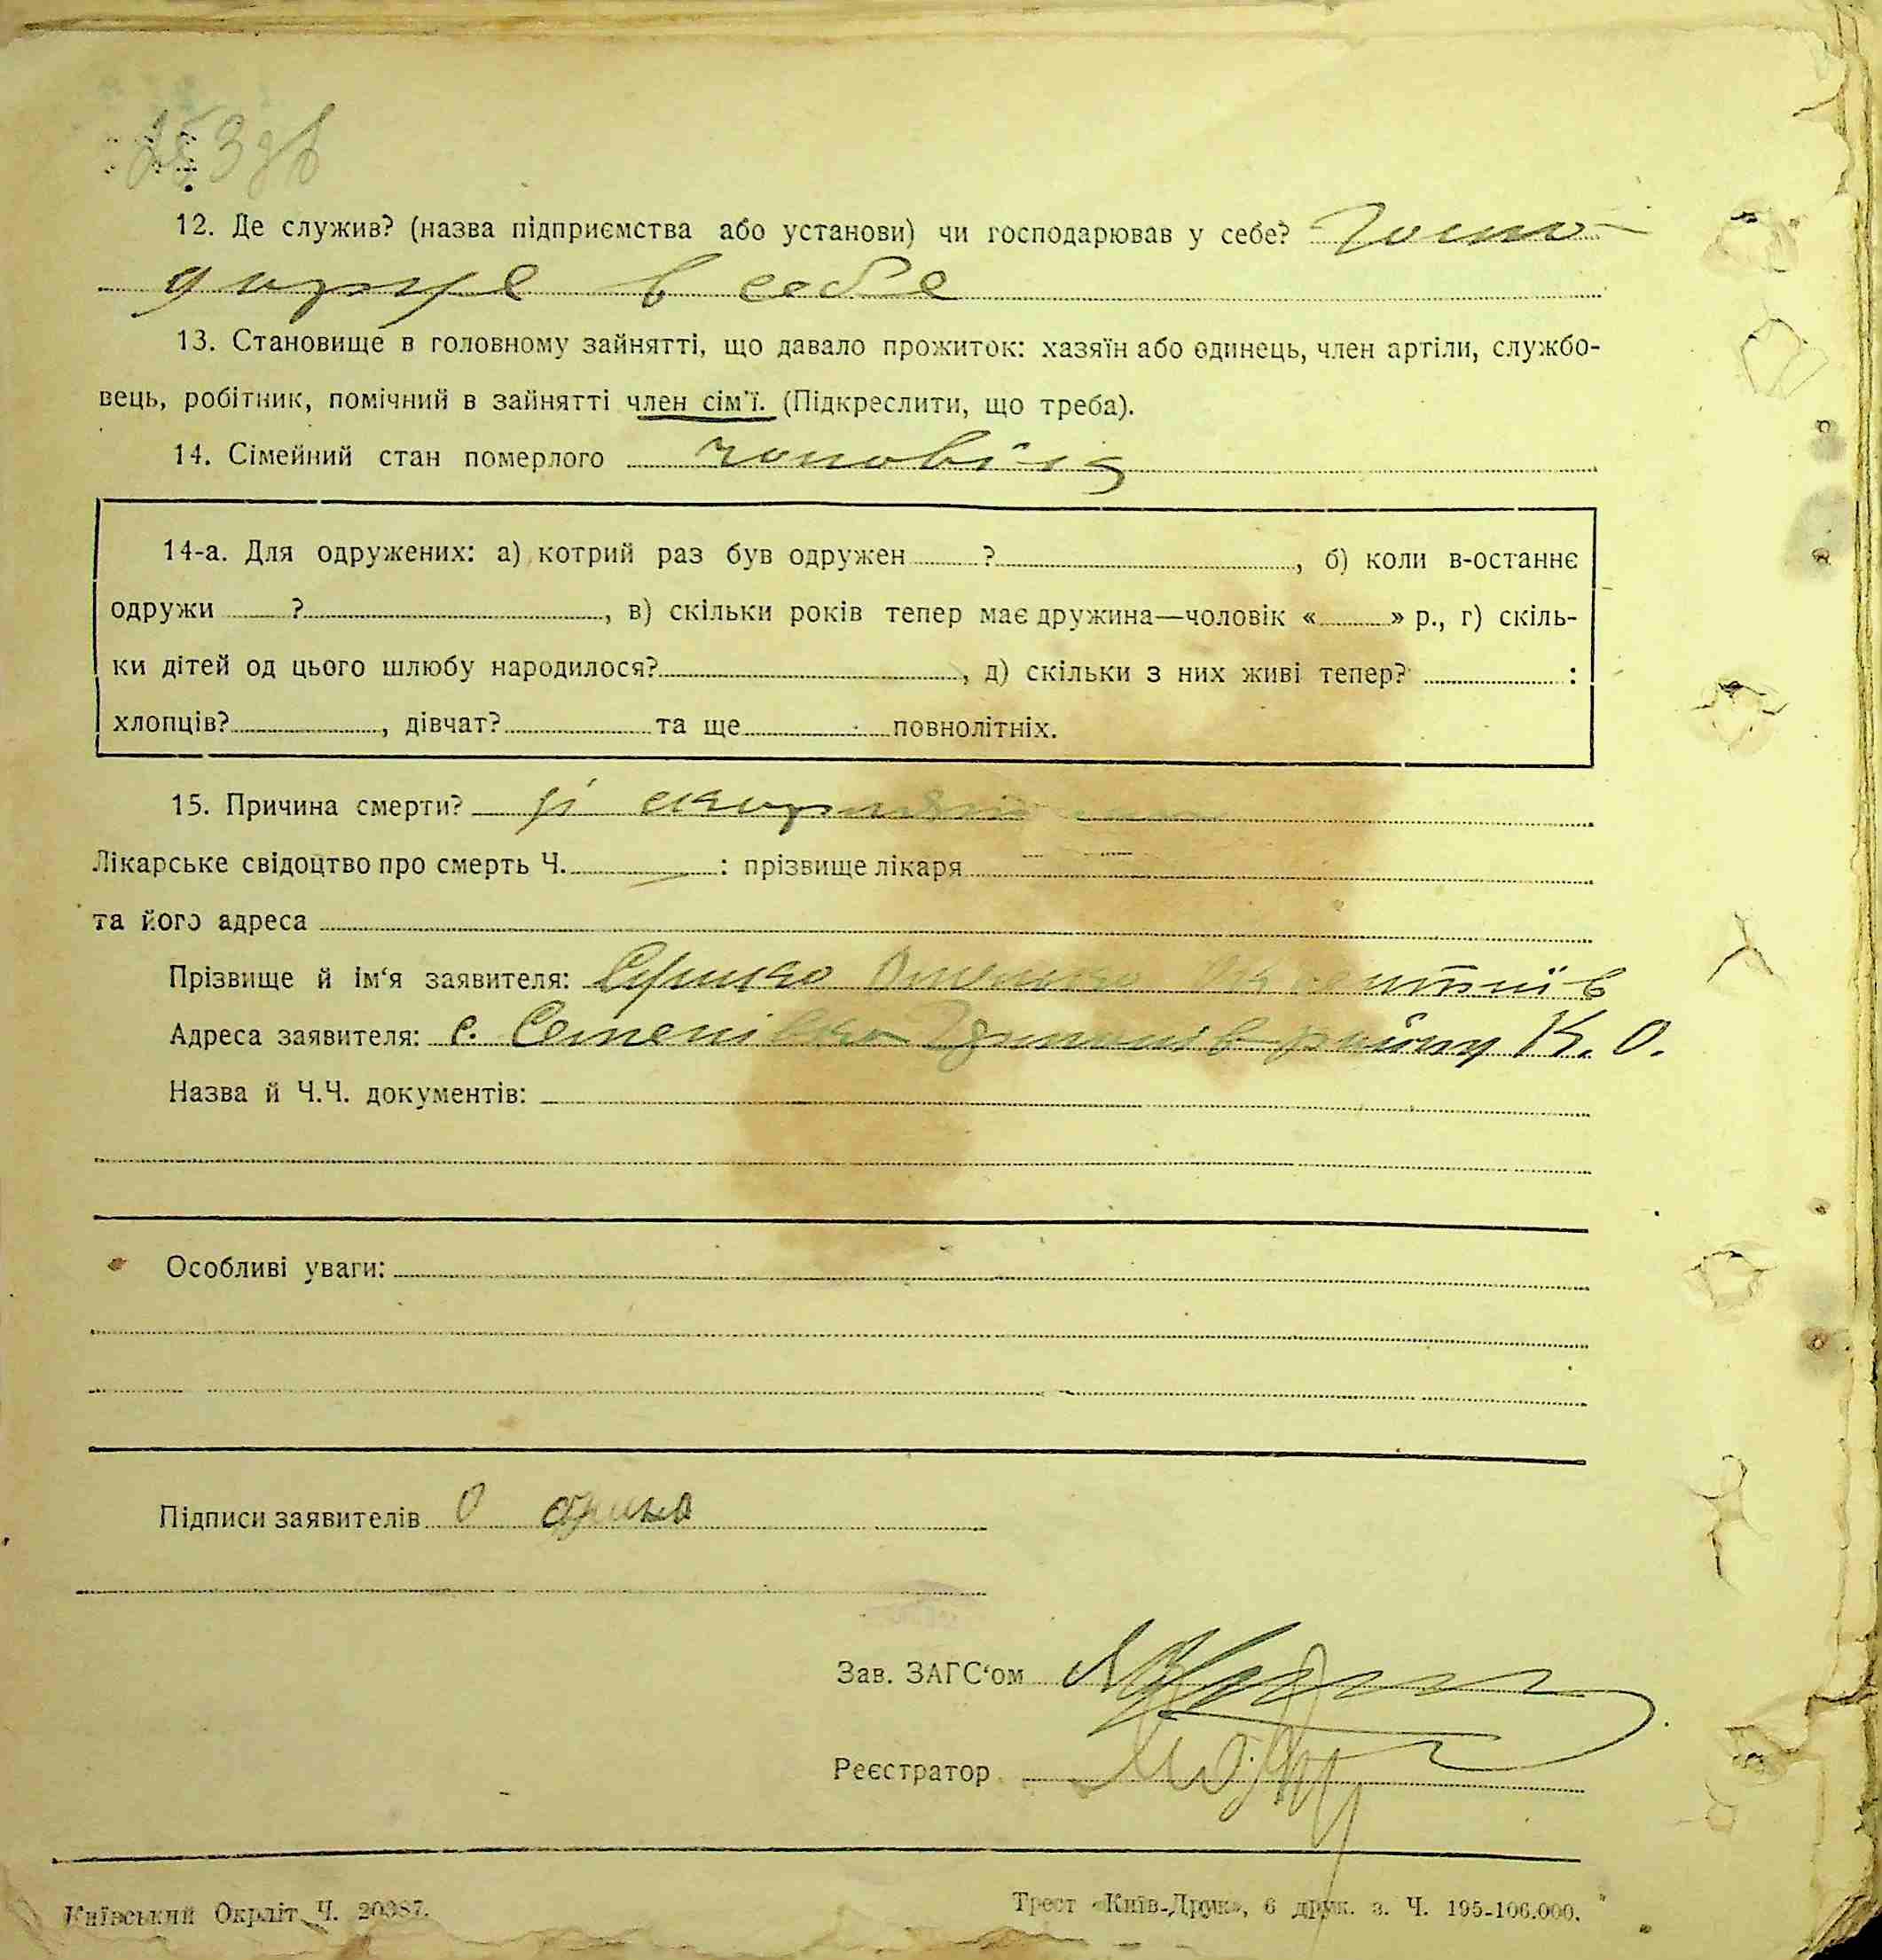 12. Де служив? (назва підприємства або установи) чи господарював у себе? Госпо-
дарує в себе
13. Становище в головному зайнятті, що давало прожиток: хазяїн або одинець, член артіли, службо-
вець, робітник, помічний в зайнятті член сім'ї. (Підкреслити, що треба).
14. Сімейний стан померлого
14-а. Для одружених: а) котрий раз був одружен ?, б) коли в-останнє
одружи ?, в) скільки років тепер має дружина—чоловік « » р., г) скіль-
ки дітей од цього шлюбу народилося?, д) скільки з них живі тепер? :
хлопців?, дівчат? та ще повнолітніх.
15. Причина смерти?
Лікарське свідоцтво про смерть Ч. : прізвище лікаря
та його адреса
Прізвище й ім'я заявителя:
Адреса заявителя: с. Степенівка району К. О.
Назва й Ч.Ч. документів:
Особливі уваги:
Підписи заявителів
Зав. ЗАГС'ом
Реєстратор
Київський Окрліт Ч. 20387.
Трест «Київ-Друк», 6 друк. з. Ч. 195-106.000.